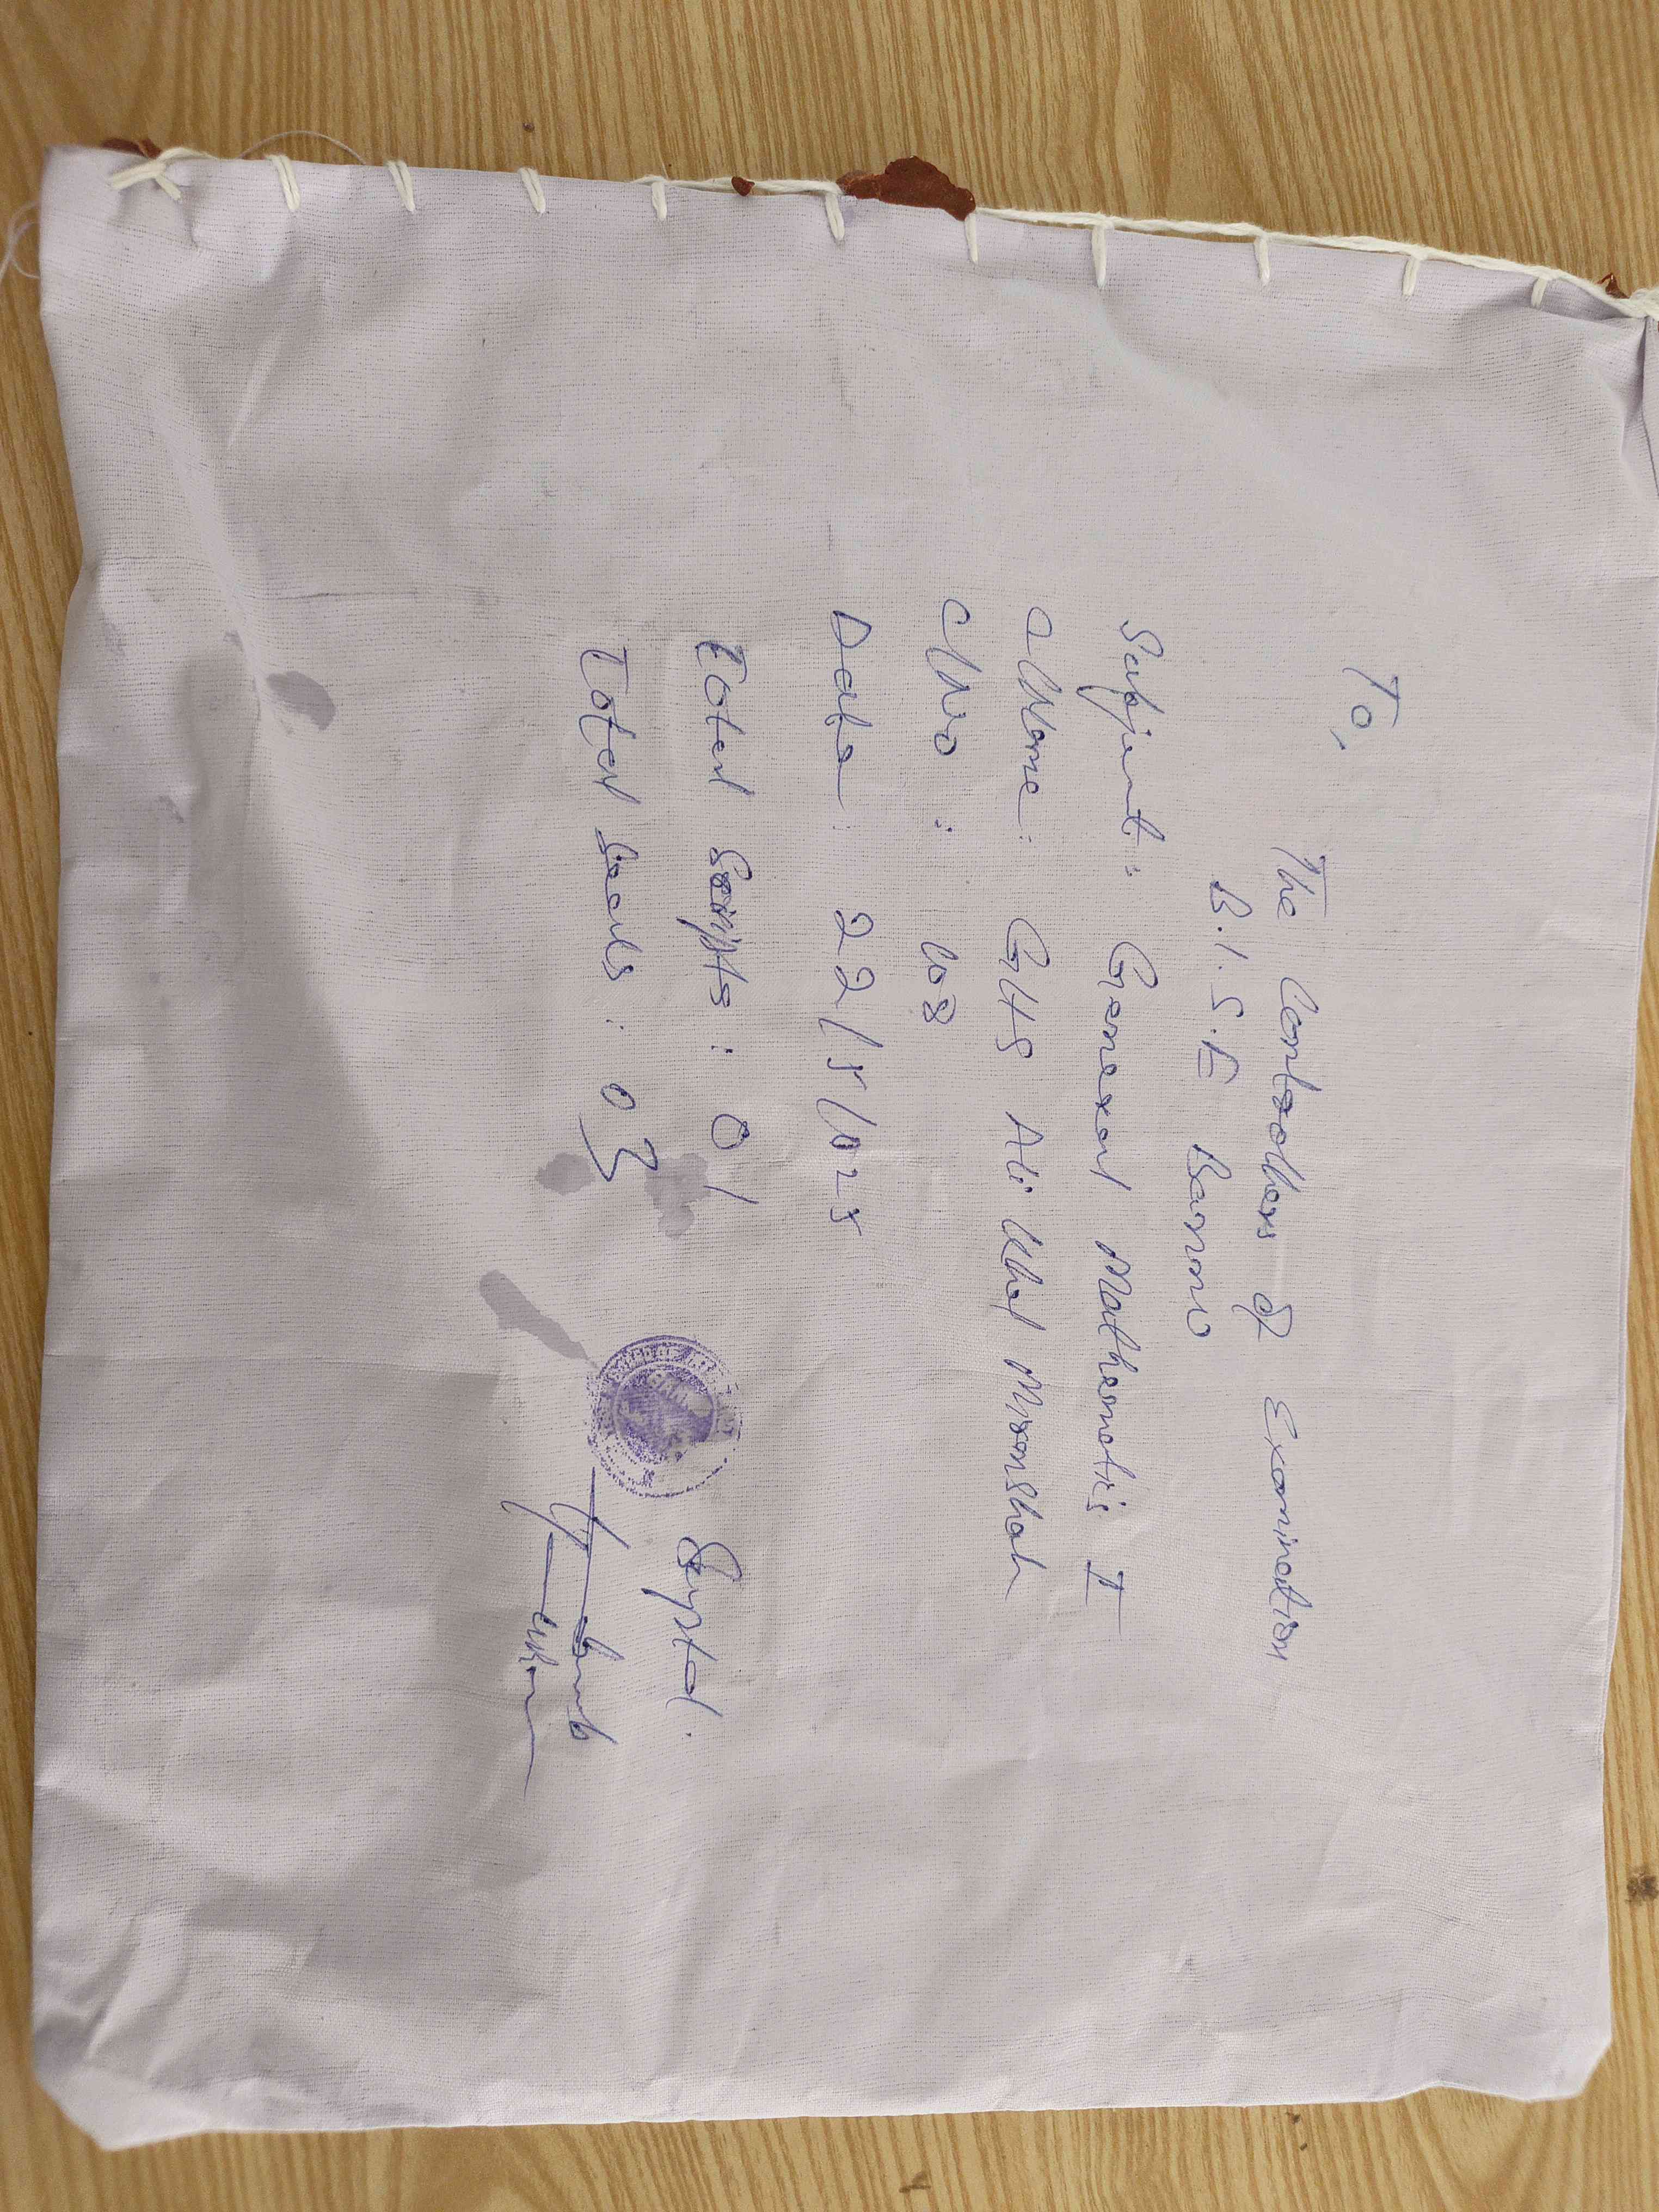 To,
The Controllers of Examination
B.I.S.E Bannu
Subject: General Mathematics I
C/Name: GHS Ali Khel Miranshah
C/No: 108
Date: 22/5/025
Total Scripts: 01
Total Seals: 03
Suptd.